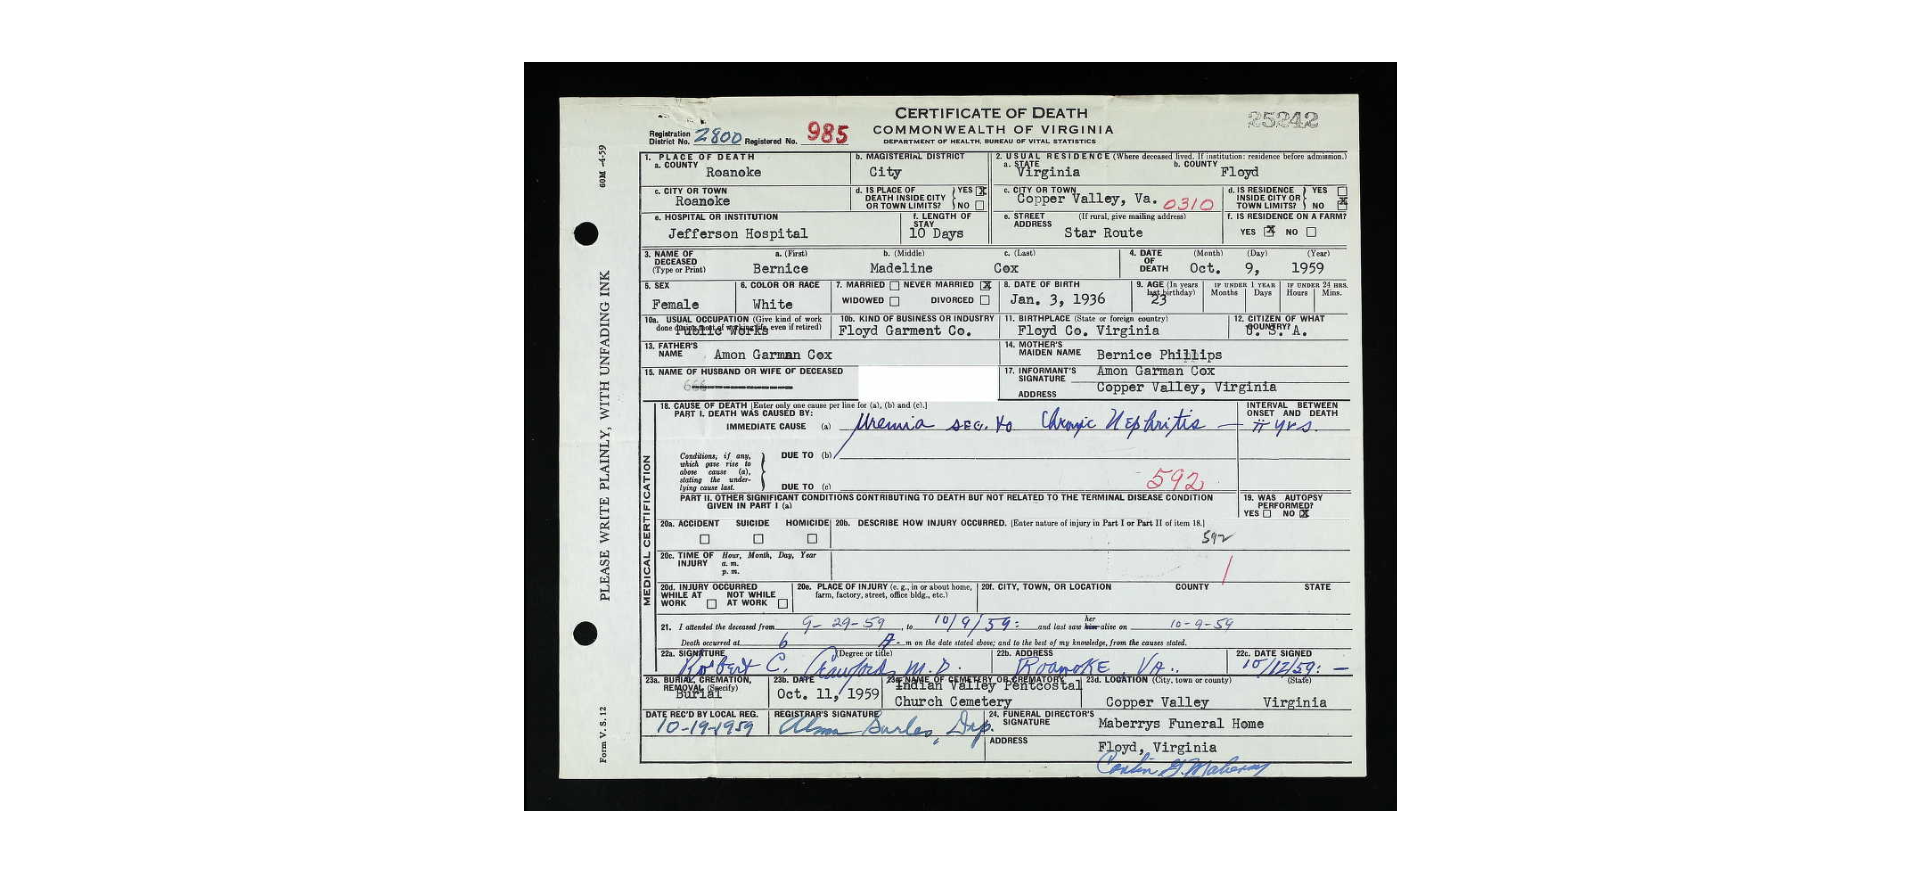 CERTIFICATE OF DEATH
COMMONWEALTH OF VIRGINIA
DEPARTMENT OF HEALTH, BUREAU OF VITAL STATISTICS
25242
Registration District No. 2800 Registered No. 985
60M -4-59
PLEASE WRITE PLAINLY, WITH UNFADING INK
Form V. S. 12
1. PLACE OF DEATH
a. COUNTY
Roanoke
b. MAGISTERIAL DISTRICT
City
2. USUAL RESIDENCE (Where deceased lived. If institution: residence before admission.)
a. STATE
Virginia
b. COUNTY
Floyd
c. CITY OR TOWN
Roanoke
d. IS PLACE OF DEATH INSIDE CITY OR TOWN LIMITS? YES X NO
c. CITY OR TOWN
Copper Valley, Va. 0310
d. IS RESIDENCE INSIDE CITY OR TOWN LIMITS? YES NO X
e. HOSPITAL OR INSTITUTION
Jefferson Hospital
f. LENGTH OF STAY
10 Days
e. STREET ADDRESS (If rural, give mailing address)
Star Route
f. IS RESIDENCE ON A FARM?
YES X NO
3. NAME OF DECEASED (Type or Print)
a. (First) b. (Middle) c. (Last)
Bernice Madeline Cox
4. DATE OF DEATH (Month) (Day) (Year)
Oct. 9, 1959
5. SEX
Female
6. COLOR OR RACE
White
7. MARRIED NEVER MARRIED X
WIDOWED DIVORCED
8. DATE OF BIRTH
Jan. 3, 1936
9. AGE (In years last birthday)
23
IF UNDER 1 YEAR
Months Days
IF UNDER 24 HRS.
Hours Mins.
10a. USUAL OCCUPATION (Give kind of work done during most of working life, even if retired)
Public Works
10b. KIND OF BUSINESS OR INDUSTRY
Floyd Garment Co.
11. BIRTHPLACE (State or foreign country)
Floyd Co. Virginia
12. CITIZEN OF WHAT COUNTRY?
U. S. A.
13. FATHER'S NAME Amon Garman Cox
14. MOTHER'S MAIDEN NAME Bernice Phillips
15. NAME OF HUSBAND OR WIFE OF DECEASED
17. INFORMANT'S SIGNATURE Amon Garman Cox
ADDRESS Copper Valley, Virginia
MEDICAL CERTIFICATION
18. CAUSE OF DEATH [Enter only one cause per line for (a), (b) and (c).]
PART I. DEATH WAS CAUSED BY:
IMMEDIATE CAUSE (a) Uremia sec. to Chronic Nephritis
INTERVAL BETWEEN ONSET AND DEATH
yrs.
Conditions, if any, which gave rise to above cause (a), stating the underlying cause last.
DUE TO (b)
DUE TO (c)
592
PART II. OTHER SIGNIFICANT CONDITIONS CONTRIBUTING TO DEATH BUT NOT RELATED TO THE TERMINAL DISEASE CONDITION GIVEN IN PART I (a)
19. WAS AUTOPSY PERFORMED?
YES NO X
20a. ACCIDENT SUICIDE HOMICIDE
20b. DESCRIBE HOW INJURY OCCURRED. (Enter nature of injury in Part I or Part II of item 18.)
592
20c. TIME OF INJURY Hour, Month, Day, Year
a. m.
p. m.
20d. INJURY OCCURRED
WHILE AT WORK NOT WHILE AT WORK
20e. PLACE OF INJURY (e. g., in or about home, farm, factory, street, office bldg., etc.)
20f. CITY, TOWN, OR LOCATION COUNTY STATE
21. I attended the deceased from 9-29-59, to 10/9/59: and last saw her him alive on 10-9-59
Death occurred at 6 A. m on the date stated above; and to the best of my knowledge, from the causes stated.
22a. SIGNATURE (Degree or title)
Robert C. Crawford M.D.
22b. ADDRESS
Roanoke, Va.
22c. DATE SIGNED
10/12/59: —
23a. BURIAL, CREMATION, REMOVAL (Specify)
Burial
23b. DATE
Oct. 11, 1959
23c. NAME OF CEMETERY OR CREMATORY
Indian Valley Pentcostal
Church Cemetery
23d. LOCATION (City, town or county) (State)
Copper Valley Virginia
DATE REC'D BY LOCAL REG.
10-19-1959
REGISTRAR'S SIGNATURE
Dep.
24. FUNERAL DIRECTOR'S SIGNATURE Maberrys Funeral Home
ADDRESS
Floyd, Virginia